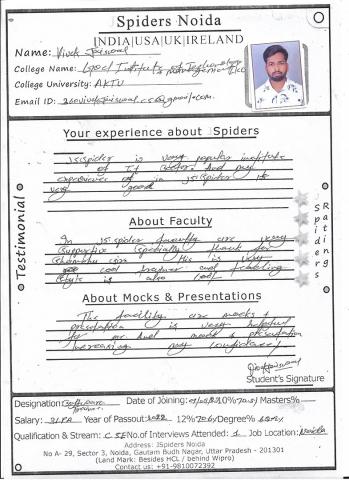 Spiders Noida
INDIA|USA|UK|IRELAND
Name: Vivek Jaiswal
College Name: Goel Institute of Technology
& Management LKO
College University: AKTU
Email ID:
Your experience about JSpiders
Jspider is very popular institute
of IT Sector. And my
experience of in JSpider is
very good
About Faculty
In JSpider faculty are very
Supportive Specially thank for
sir. He is very
cool trainer and teaching
Style is also cool
About Mocks & Presentations
The facility are mocks &
presentation is very helpful
for me and mock & presentation
increasing my confidence
Student's Signature
Testimonial
Spiders
Ratings
Designation: Software Date of Joining: 10% Masters%
Salary: Year of Passout: 2022 12% Degree%
Qualification & Stream: CSE No.of Interviews Attended: Job Location: Noida
Address: JSpiders Noida
No A- 29, Sector 3, Noida, Gautam Budh Nagar, Uttar Pradesh - 201301
(Land Mark: Besides HCL / behind Wipro)
Contact us: +91-9810072392